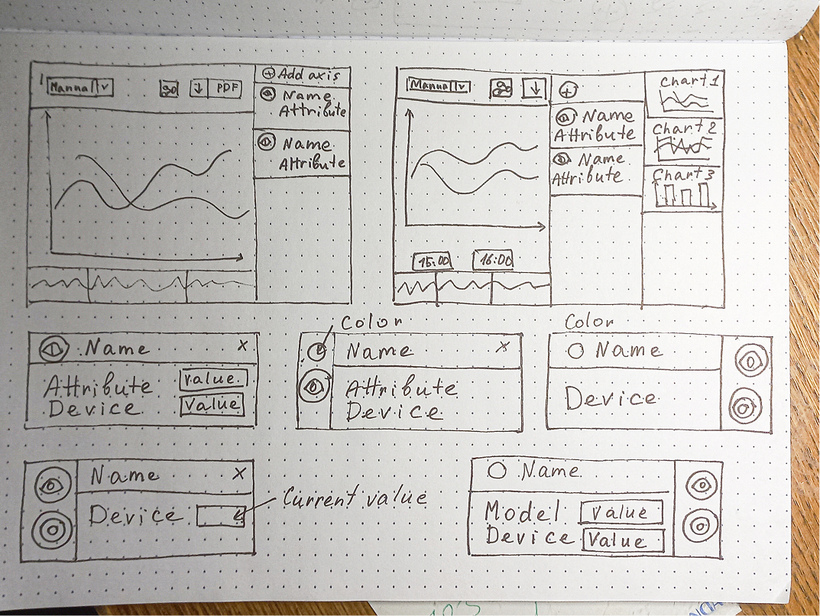 Manna
PDF
Add axis
Name
Attribute
Name
Attribute
Manna
Name
Attribute
Name
Attribute
Chart 1
Chart 2
Chart 3
15:00
16:00
Name X
Attribute Value
Device Value
Color
Name X
Attribute
Device
Color
Name
Device
Name X
Device
Current value
Name
Model Value
Device Value